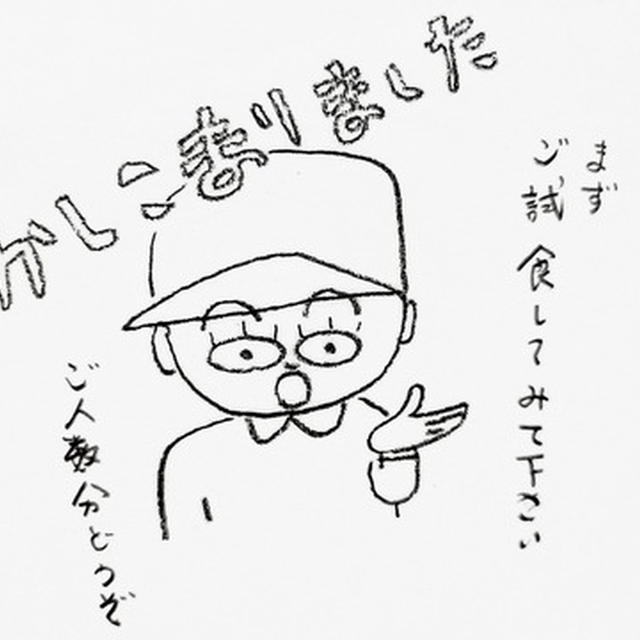 かしこまりました
まず
ご試食してみて下さい
ご人数分どうぞ